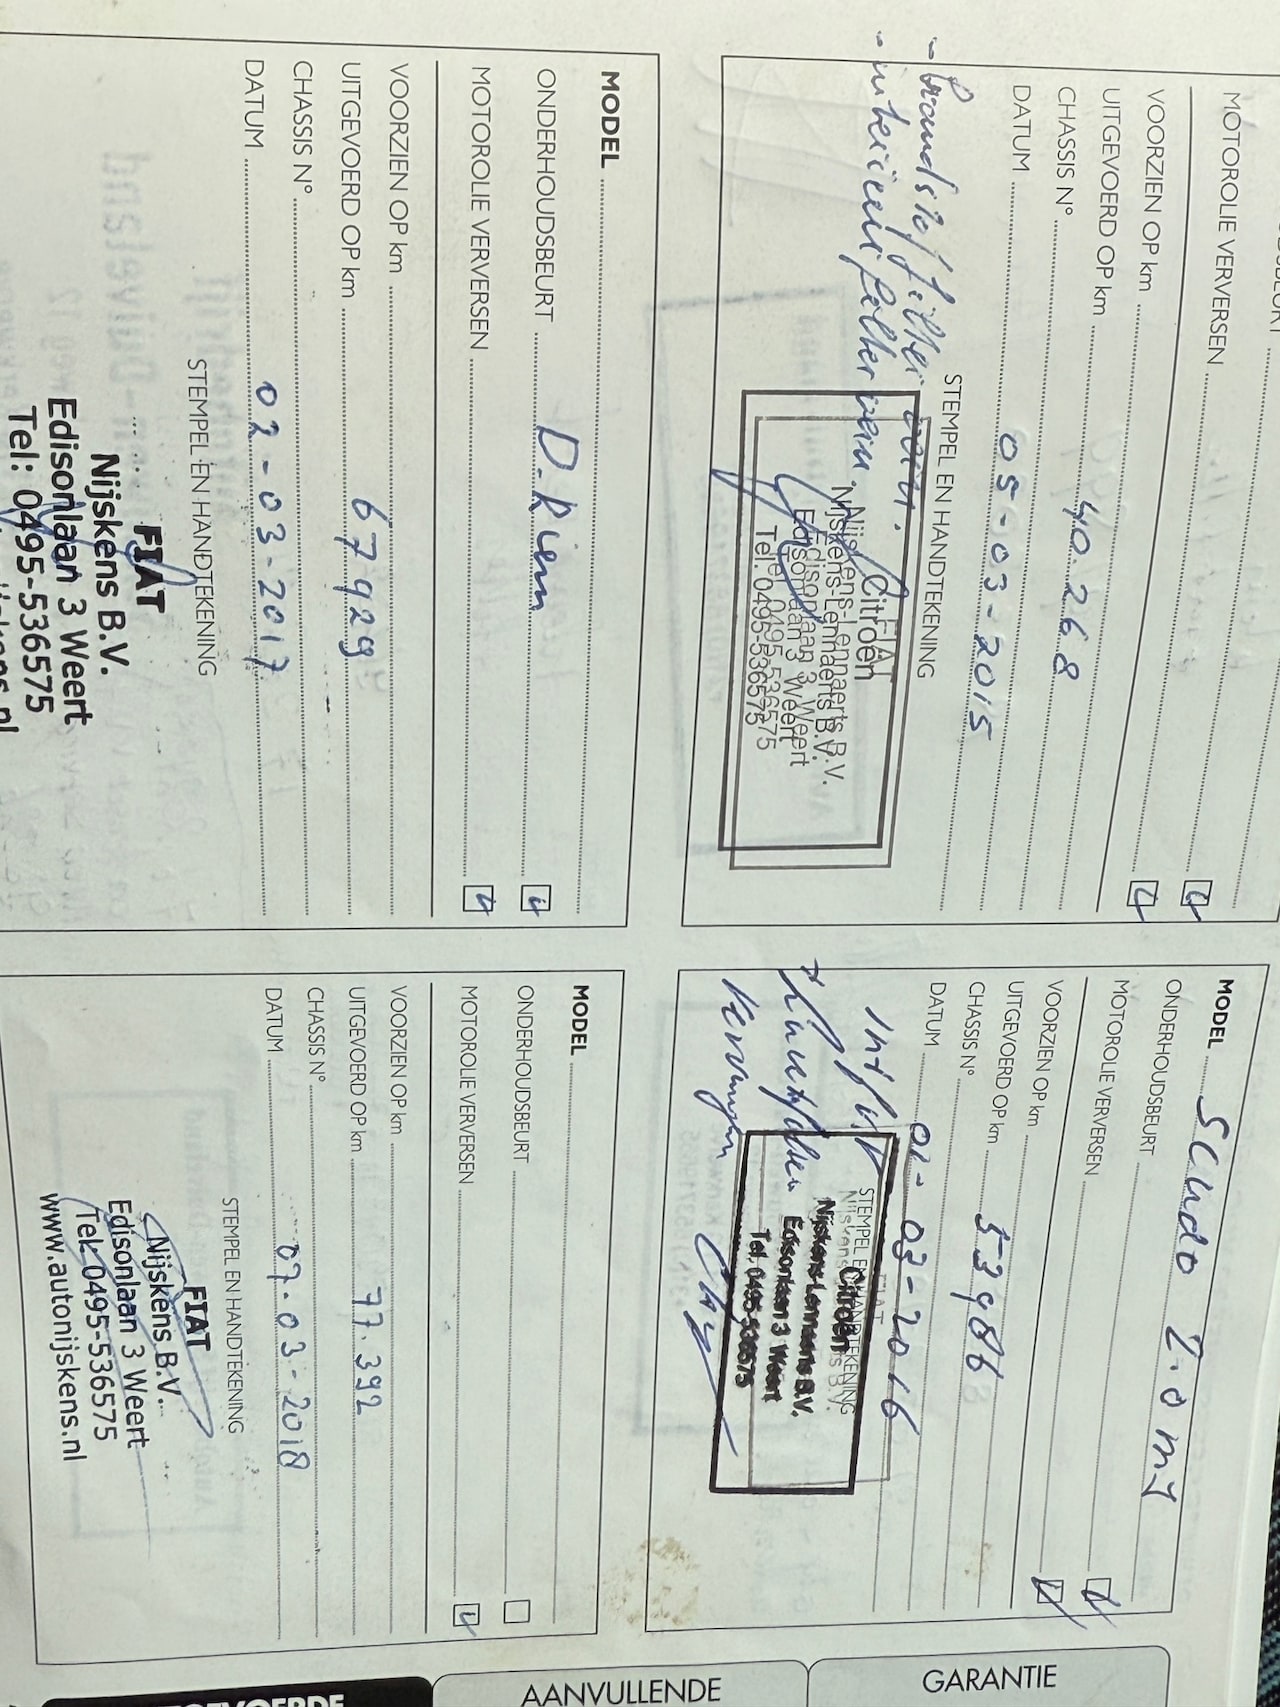 MOTOROLIE VERVERSEN
VOORZIEN OP km
UITGEVOERD OP km 40.268
CHASSIS N°
DATUM 05-03-2015
STEMPEL EN HANDTEKENING
Citroën
Nijskens-Lennaerts B.V.
Edisonlaan 3 Weert
Tel. 0495-536575
MODEL
ONDERHOUDSBEURT
MOTOROLIE VERVERSEN
VOORZIEN OP km
UITGEVOERD OP km 67929
CHASSIS N°
DATUM 02-03-2017
STEMPEL EN HANDTEKENING
FIAT
Nijskens B.V.
Edisonlaan 3 Weert
Tel: 0495-536575
MODEL Scudo 2.0 MJ
ONDERHOUDSBEURT
MOTOROLIE VERVERSEN
VOORZIEN OP km
UITGEVOERD OP km 53986
CHASSIS N°
DATUM 01-03-2016
STEMPEL EN HANDTEKENING
Citroën
Nijskens-Lennaerts B.V.
Edisonlaan 3 Weert
Tel. 0495-536575
MODEL
ONDERHOUDSBEURT
MOTOROLIE VERVERSEN
VOORZIEN OP km
UITGEVOERD OP km 77.392
CHASSIS N°
DATUM 07-03-2018
STEMPEL EN HANDTEKENING
FIAT
Nijskens B.V.
Edisonlaan 3 Weert
Tel: 0495-536575
www.autonijskens.nl
GARANTIE
AANVULLENDE